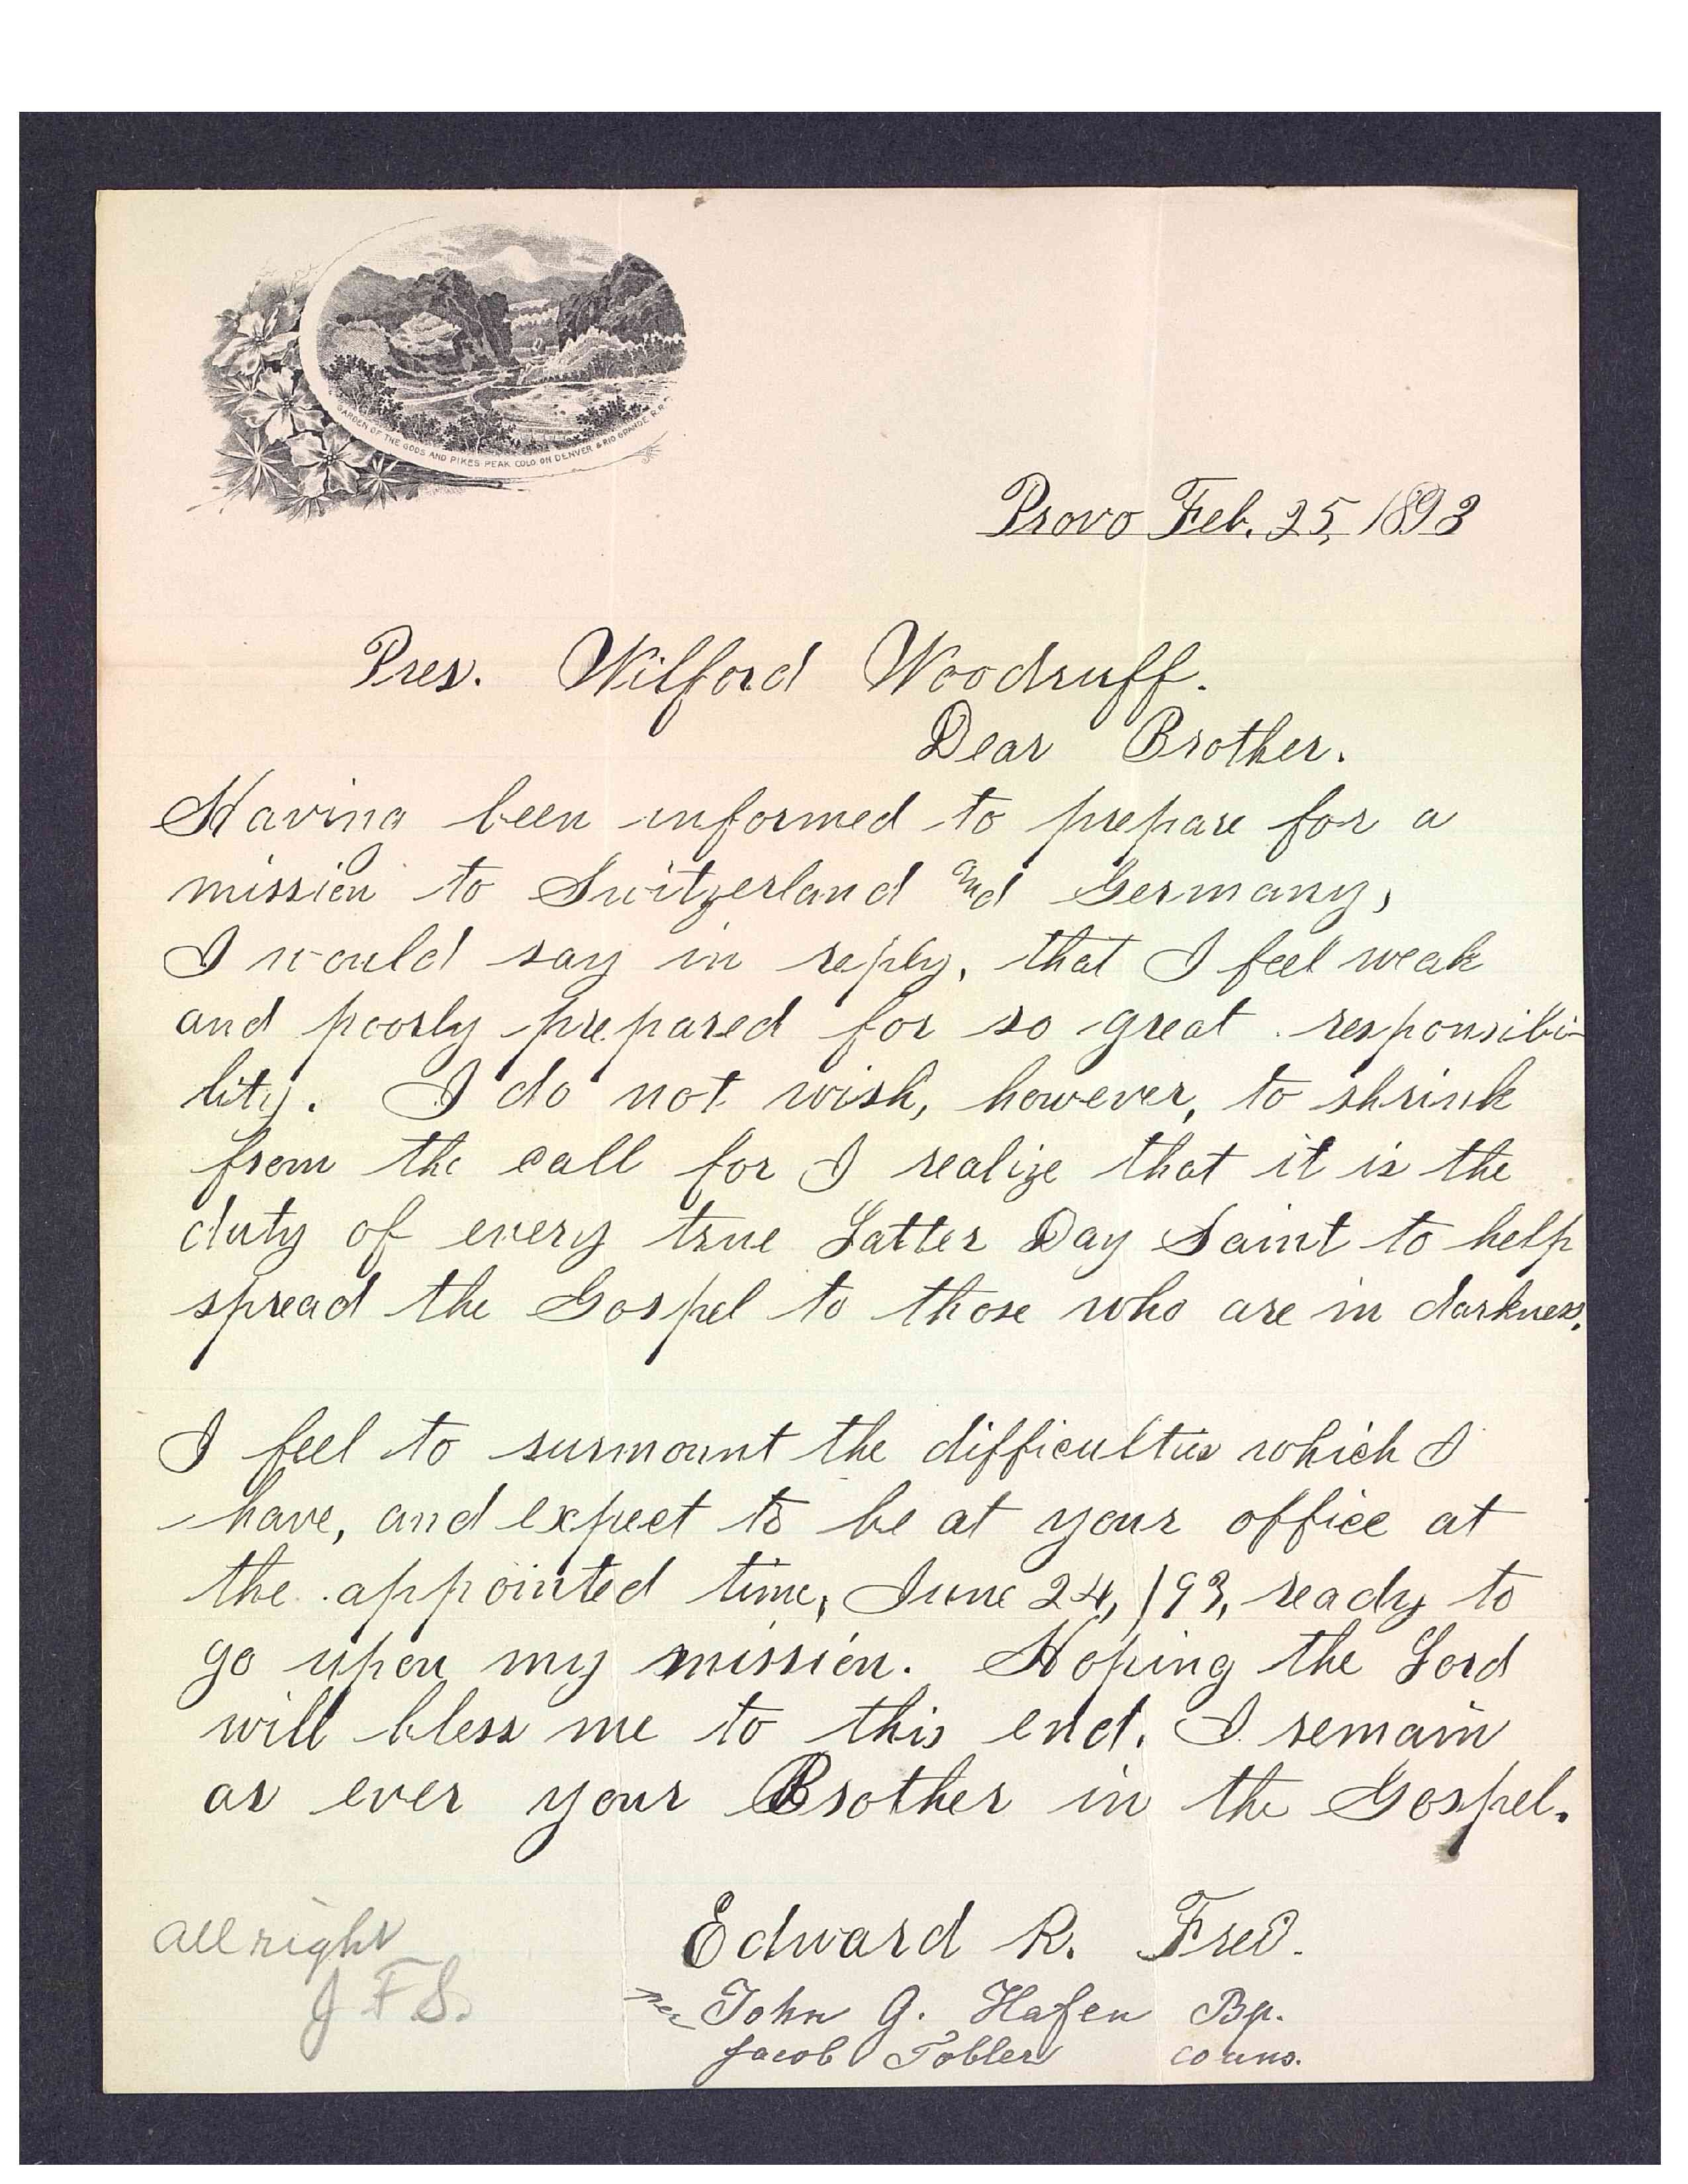 GARDEN OF THE GODS AND PIKES PEAK COLO. ON DENVER & RIO GRANDE R.R.
Provo Feb. 25, 1893
Pres. Wilford Woodruff.
Dear Brother.
Having been informed to prepare for a
mission to Switzerland and Germany,
I would say in reply, that I feel weak
and poorly prepared for so great responsibi-
lity. I do not wish, however, to shrink
from the call for I realize that it is the
duty of every true Latter Day Saint to help
spread the Gospel to those who are in darkness.
I feel to surmount the difficulties which I
have, and expect to be at your office at
the appointed time, June 24, /93, ready to
go upon my mission. Hoping the Lord
will bless me to this end. I remain
as ever your Brother in the Gospel.
Edward R. Frei.
John G. Hafen Bp.
Jacob Tobler couns.
All right
J. F. S.